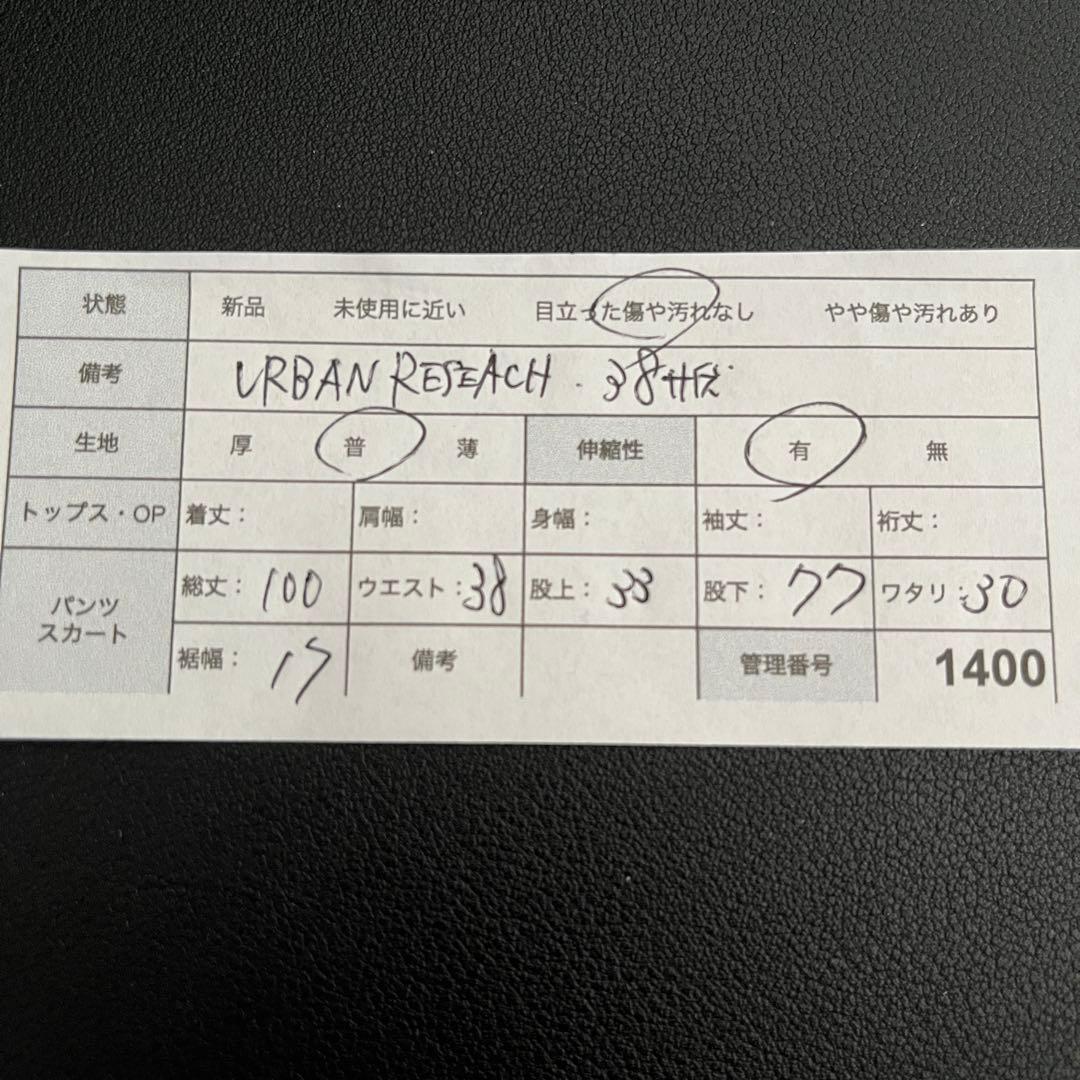 状態 新品 未使用に近い 目立った傷や汚れなし やや傷や汚れあり
備考 URBAN RESEACH . 38サイズ
生地 厚 普 薄 伸縮性 有 無
トップス・OP 着丈： 肩幅： 身幅： 袖丈： 裄丈：
パンツ
スカート
総丈：100 ウエスト：38 股上：33 股下：77 ワタリ：30
裾幅：17 備考 管理番号 1400